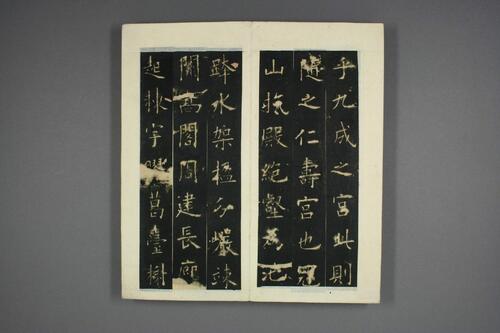 乎九成之宮此則
隨之仁壽宮也冠
山抗殿絶壑為池
跨水架楹分巖竦
闕高閣周建長廊
起棟宇膠葛臺榭